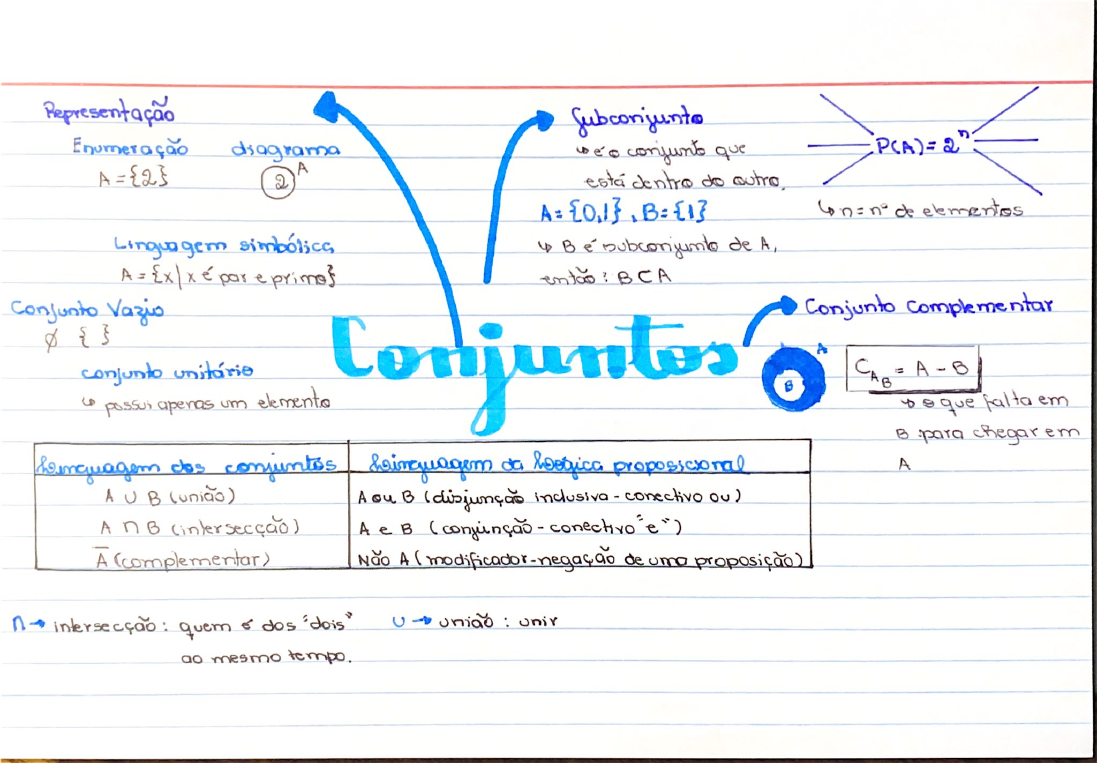 Representação
Enumeração diagrama
A = {2} 2 A
Linguagem simbólica
A = {x | x é par e primo}
Conjunto Vazio
∅ { }
conjunto unitário
↳ possui apenas um elemento
Subconjunto
↳ é o conjunto que
está dentro do outro.
A = {0,1}, B = {1}
↳ B é subconjunto de A,
então: B ⊂ A
P(A) = 2ⁿ
↳ n = nº de elementos
Conjuntos
Conjunto Complementar
A
B
C_A_B = A - B
↳ o que falta em
B para chegar em
A
Linguagem dos conjuntos | Linguagem da Lógica proposicional
A ∪ B (união) | A ou B (disjunção inclusiva - conectivo ou)
A ∩ B (intersecção) | A e B (conjunção - conectivo "e")
A̅ (complementar) | Não A (modificador - negação de uma proposição)
∩ → intersecção: quem é dos "dois"
ao mesmo tempo.
∪ → união: unir